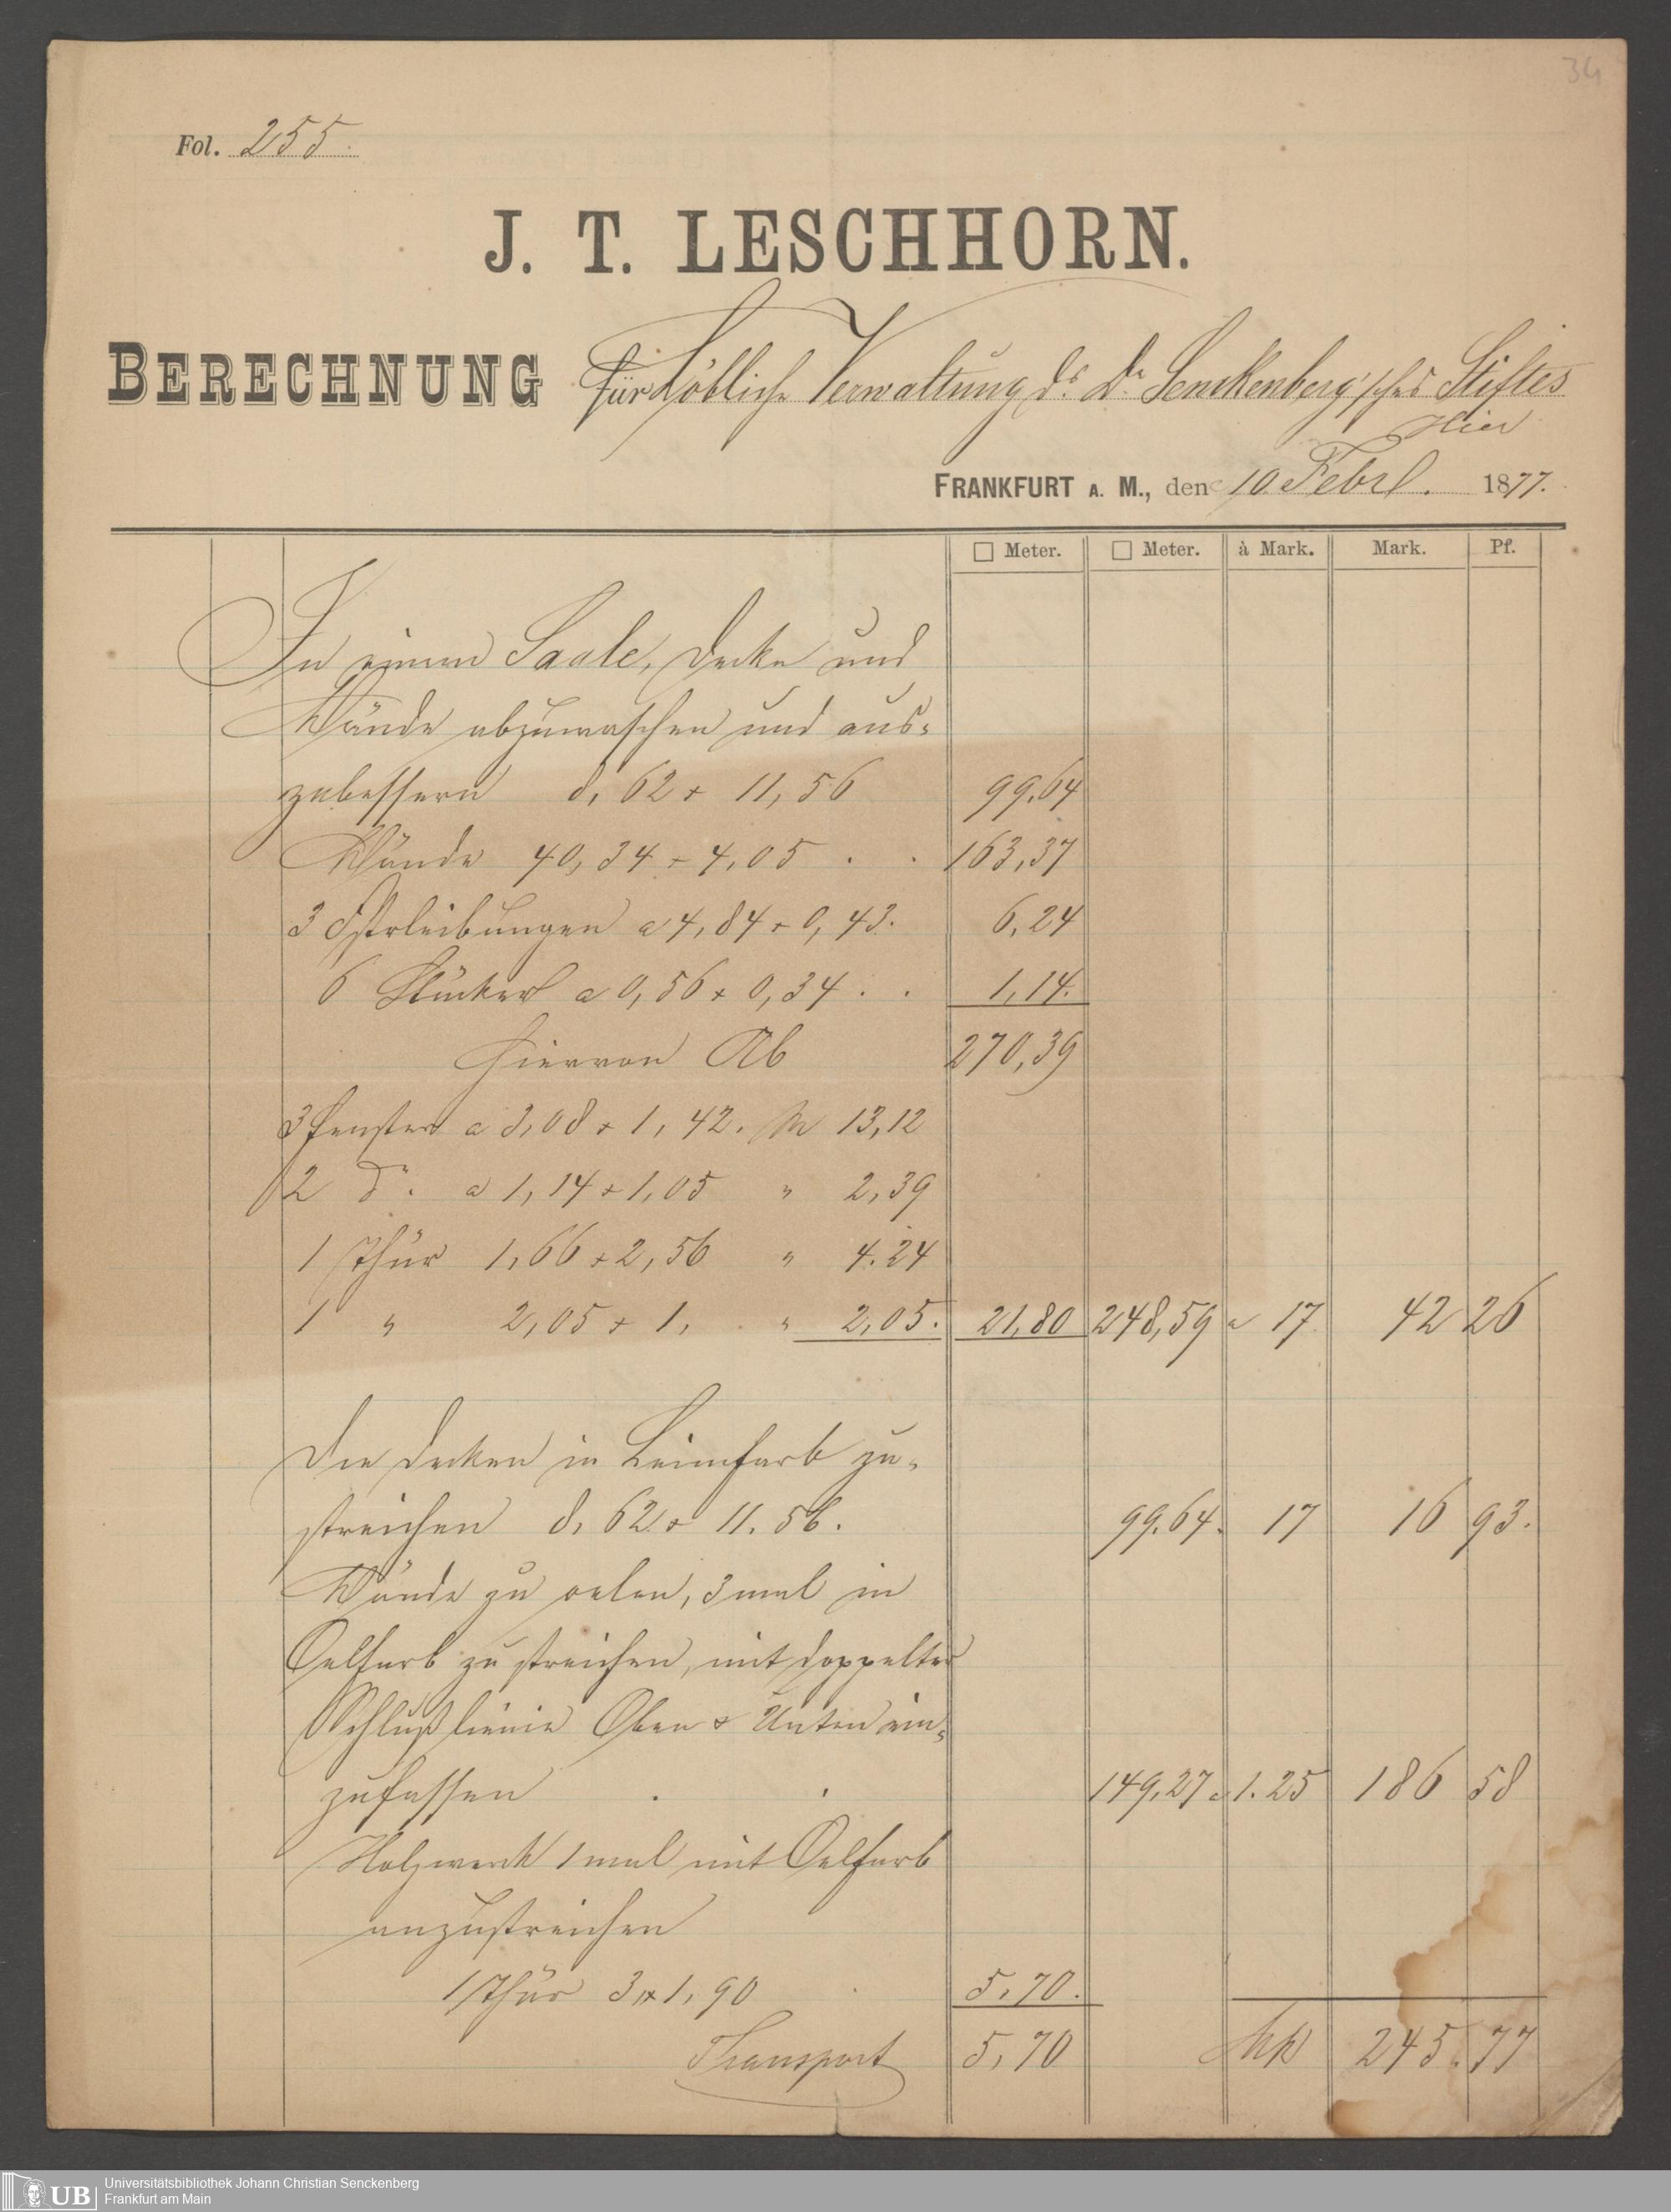 34
Fol. 255.
J. T. LESCHHORN.
BERECHNUNG für Löbliche Verwaltung ds. Dr. Senckenberg'sches Stiftes
Hier
FRANKFURT A. M., den 10. Febrl. 1877.
□ Meter. □ Meter. à Mark. Mark. Pf.
In einem Saale, Decke und
Wände abzuwaschen und aus-
zubessern 8,62 + 11,56 99,64
Wände 40,34 + 4,05 . . 163,37
3 a 4,84 + 0,43. 6,24
6 Stücker a 0,56 + 0,34 . . 1,14.
Hiervon Ab 270,39
3 Fenster a 3,08 + 1,42. M 13,12
2 do. a 1,14 + 1,05 " 2,39
1 Thür 1,66 + 2,56 " 4.24
1 " 2,05 + 1, . " 2,05. 21,80 248,59 a 17 42 26
Die Decken in Leimfarb zu-
streichen 8,62 + 11.56. 99.64. 17 16 93.
Wände zu oelen, 3 mal in
Oelfarb zu streichen, mit doppelter
Schlußlienie Oben & Unten ein-
zufassen . . 149,27 a 1.25 186 58
Holzwerk 1 mal mit Oelfarb
anzustreichen
1 Thür 3 + 1,90 . 5,70.
Transport 5,70 Mk 245.77
UB Universitätsbibliothek Johann Christian Senckenberg
Frankfurt am Main